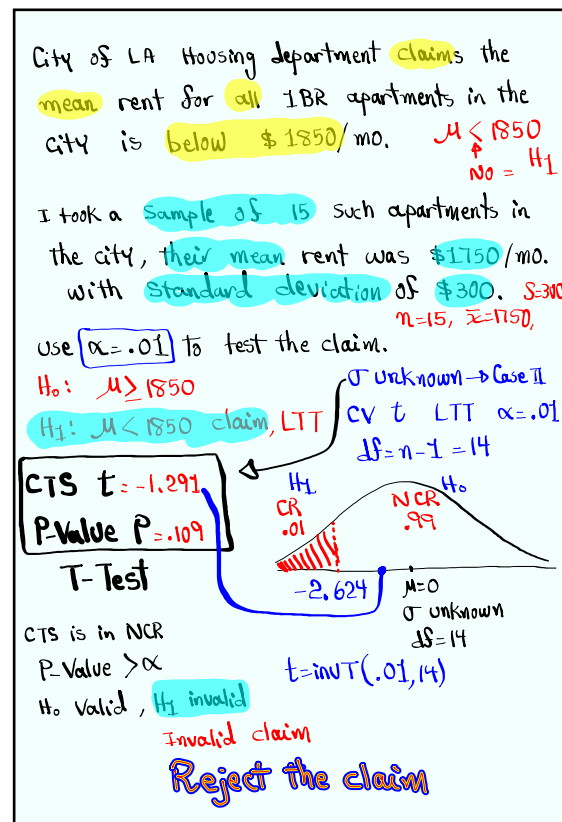 City of LA Housing department claims the
mean rent for all 1BR apartments in the
city is below $1850/mo.
μ < 1850
No = H₁
I took a sample of 15 such apartments in
the city, their mean rent was $1750/mo.
with standard deviation of $300. S=300
n=15, x̄=1750,
Use α=.01 to test the claim.
H₀: μ ≥ 1850
H₁: μ < 1850 claim, LTT
σ unknown → Case II
CV t LTT α=.01
df=n-1=14
CTS t=-1.291
P-Value P=.109
T-Test
H₁
CR
.01
NCR
.99
H₀
-2.624
μ=0
σ unknown
df=14
CTS is in NCR
P-Value > α
H₀ valid, H₁ invalid
Invalid claim
t=invT(.01,14)
Reject the claim